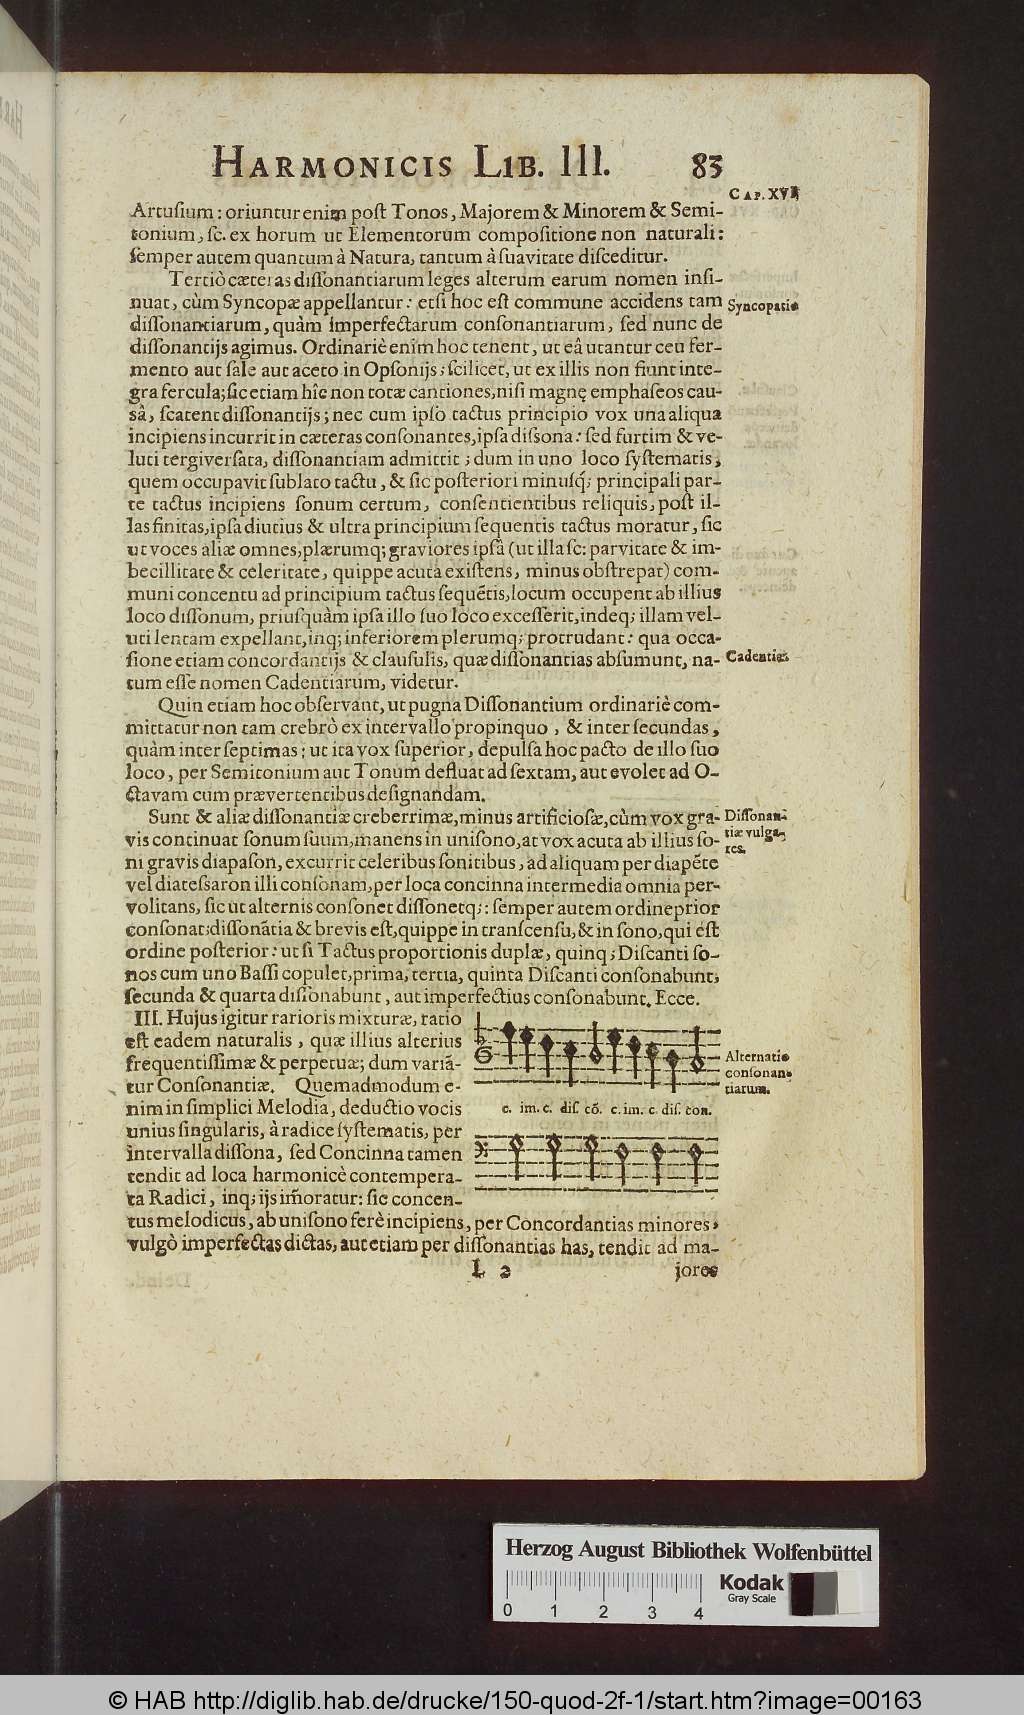 HARMONICIS LIB. III. 83
CAP. XVI
Artusium: oriuntur enim post Tonos, Majorem & Minorem & Semi-
tonium, sc. ex horum ut Elementorum compositione non naturali:
semper autem quantum à Natura, tantum à suavitate disceditur.
Tertiò cæteras dissonantiarum leges alterum earum nomen insi-
nuat, cùm Syncopæ appellantur: etsi hoc est commune accidens tam
Syncopatio
dissonantiarum, quàm imperfectarum consonantiarum, sed nunc de
dissonantijs agimus. Ordinariè enim hoc tenent, ut eâ utantur ceu fer-
mento aut sale aut aceto in Opsonijs; scilicet, ut ex illis non fiunt inte-
gra fercula; sic etiam hîc non totæ cantiones, nisi magnę emphaseos cau-
sâ, scatent dissonantijs; nec cum ipso tactus principio vox una aliqua
incipiens incurrit in cæteras consonantes, ipsa dissona: sed furtim & ve-
luti tergiversata, dissonantiam admittit; dum in uno loco systematis,
quem occupavit sublato tactu, & sic posteriori minusq; principali par-
te tactus incipiens sonum certum, consentientibus reliquis, post il-
las finitas, ipsa diutius & ultra principium sequentis tactus moratur, sic
ut voces aliæ omnes, plærumq; graviores ipsâ (ut illa sc: parvitate & im-
becillitate & celeritate, quippe acuta existens, minus obstrepat) com-
muni concentu ad principium tactus sequẽtis, locum occupent ab illius
loco dissonum, priusquàm ipsa illo suo loco excesserit, indeq; illam vel-
uti lentam expellant, inq; inferiorem plerumq; protrudant: qua occa-
sione etiam concordantijs & clausulis, quæ dissonantias absumunt, na-
Cadentiæ.
tum esse nomen Cadentiarum, videtur.
Quin etiam hoc observant, ut pugna Dissonantium ordinariè com-
mittatur non tam crebrò ex intervallo propinquo, & inter secundas,
quàm inter septimas; ut ita vox superior, depulsa hoc pacto de illo suo
loco, per Semitonium aut Tonum defluat ad sextam, aut evolet ad O-
ctavam cum prævertentibus designandam.
Sunt & aliæ dissonantiæ creberrimæ, minus artificiosæ, cùm vox gra-
Dissonan-
tiæ vulga-
res.
vis continuat sonum suum, manens in unisono, at vox acuta ab illius so-
ni gravis diapason, excurrit celeribus sonitibus, ad aliquam per diapẽte
vel diatessaron illi consonam, per loca concinna intermedia omnia per-
volitans, sic ut alternis consonet dissonetq;: semper autem ordine prior
consonat; dissonãtia & brevis est, quippe in transcensu, & in sono, qui est
ordine posterior: ut si Tactus proportionis duplæ, quinq; Discanti so-
nos cum uno Bassi copulet, prima, tertia, quinta Discanti consonabunt,
secunda & quarta dissonabunt, aut imperfectius consonabunt. Ecce.
III. Hujus igitur rarioris mixturæ, ratio
est eadem naturalis, quæ illius alterius
frequentissimæ & perpetuæ; dum variã-
tur Consonantiæ. Quemadmodum e-
nim in simplici Melodia, deductio vocis
unius singularis, à radice systematis, per
intervalla dissona, sed Concinna tamen
tendit ad loca harmonicè contempera-
ta Radici, inq; ijs im̃oratur: sic concen-
Alternatio
consonan-
tiarum.
c. im. c. dis cõ. c. im. c. dis. con.
tus melodicus, ab unisono ferè incipiens, per Concordantias minores,
vulgò imperfectas dictas, aut etiam per dissonantias has, tendit ad ma-
L 2 jores
Herzog August Bibliothek Wolfenbüttel
0 1 2 3 4
Kodak
Gray Scale
© HAB http://diglib.hab.de/drucke/150-quod-2f-1/start.htm?image=00163